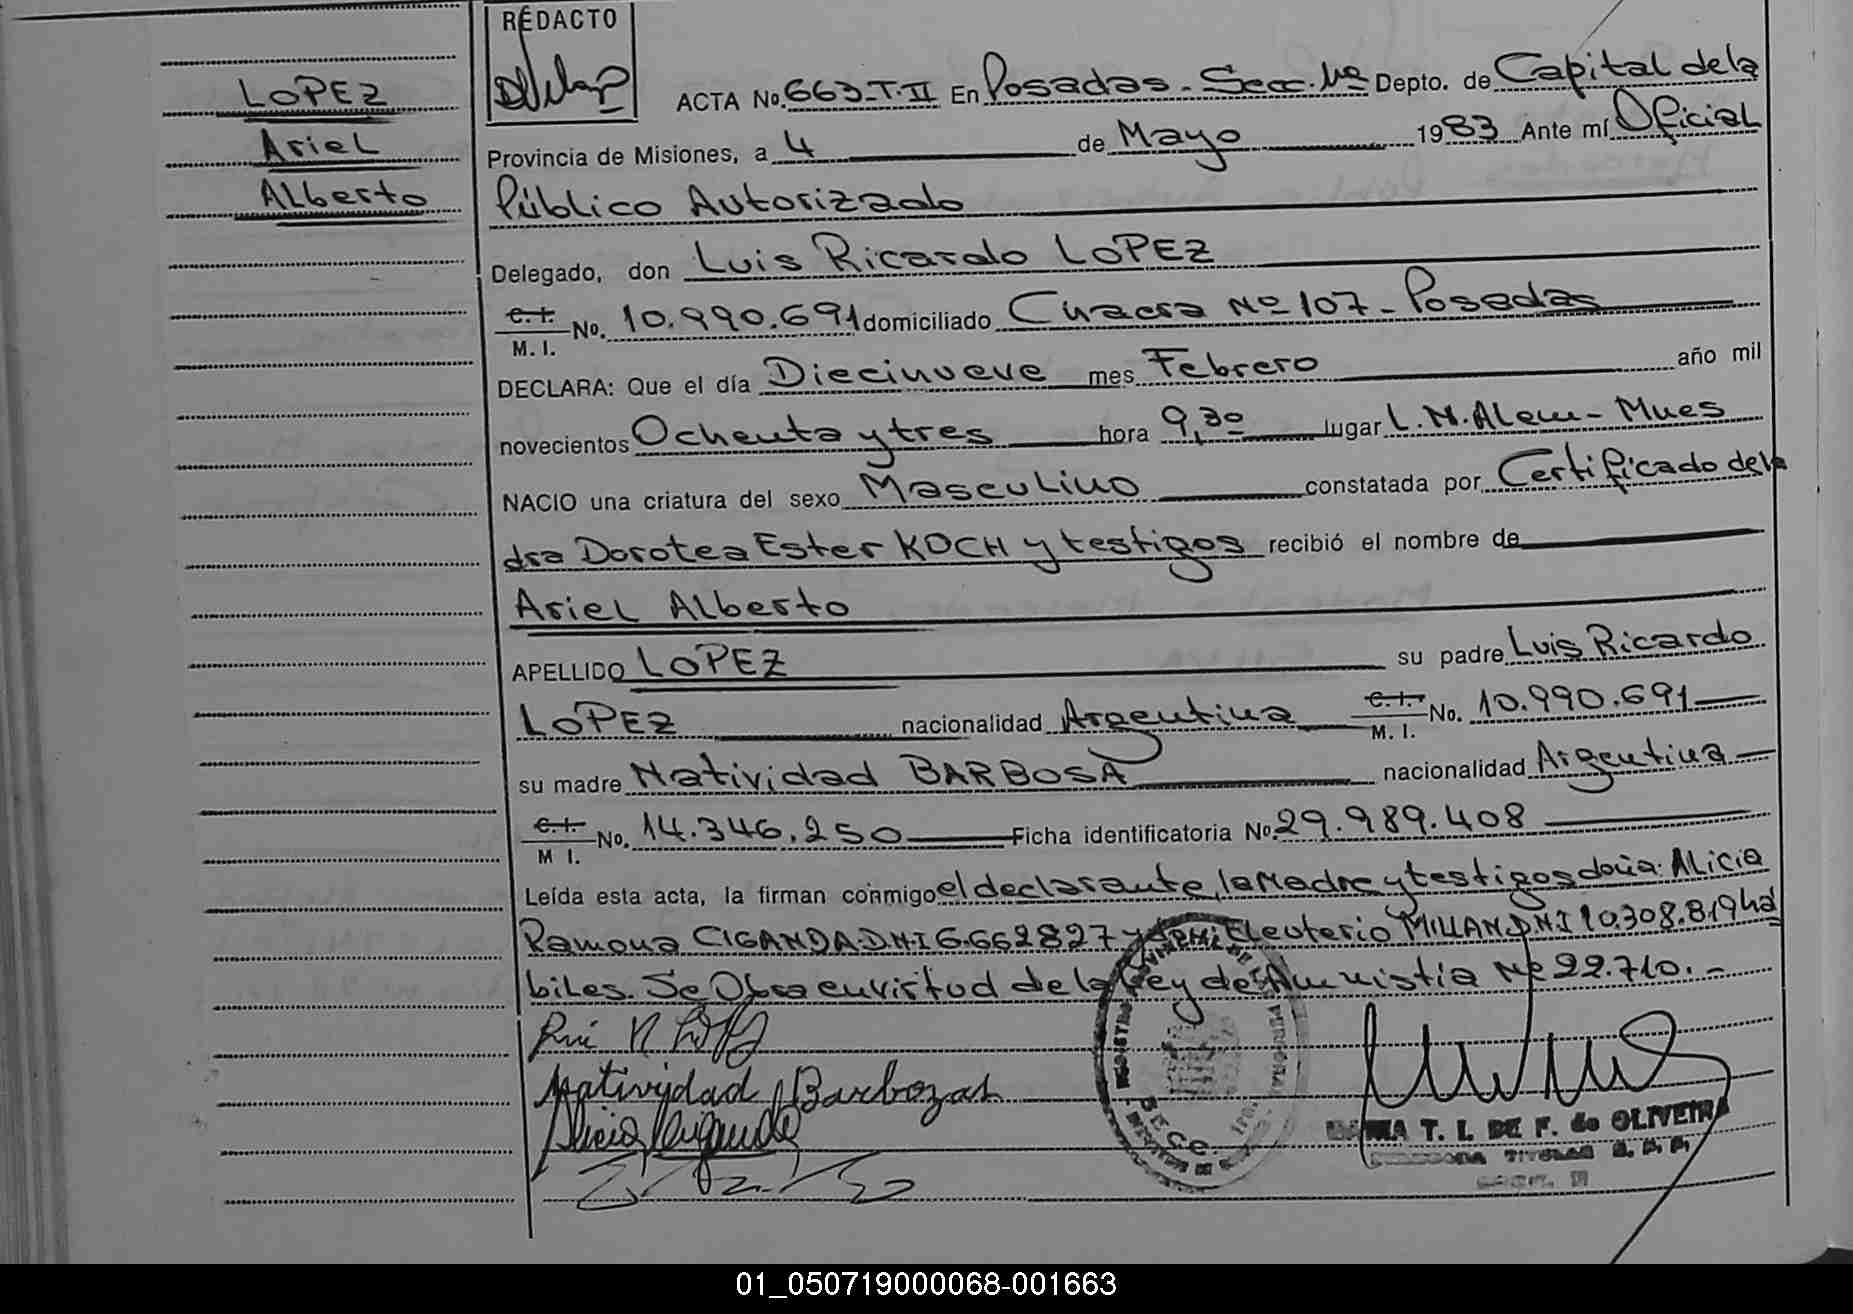 REDACTO
LOPEZ
Ariel
Alberto
ACTA No. 663-T.II En Posadas. Secc. 1ª Depto. de Capital de la
Provincia de Misiones, a 4 de Mayo 1983 Ante mí Oficial
Público Autorizado
Delegado, don Luis Ricardo LOPEZ
C.I. M. I. No. 10.990.691 domiciliado Chacra Nº 107 - Posadas
DECLARA: Que el día Diecinueve mes Febrero año mil
novecientos Ochenta y tres hora 9,30 lugar L.N.Alem - Mnes
NACIO una criatura del sexo Masculino constatada por Certificado de la
dra Dorotea Ester KOCH y testigos recibió el nombre de
Ariel Alberto
APELLIDO LOPEZ su padre Luis Ricardo
LOPEZ nacionalidad Argentina C.I. M. I. No. 10.990.691
su madre Natividad BARBOSA nacionalidad Argentina
C.I. M I. No. 14.346.250 Ficha identificatoria No. 29.989.408
Leída esta acta, la firman conmigo el declarante, la Madre y testigos doña: Alicia
Ramona CIGANDA D.N.I 6.662827 y Eleuterio MILLAN D.N.I 10.308.819 há
biles. Se Obra en virtud de la Ley de Amnistia Nº 22.710.-
Natividad Barbozas
Alicia Ciganda
T. I. DE F. de OLIVEIRA
TITULAR
01_050719000068-001663